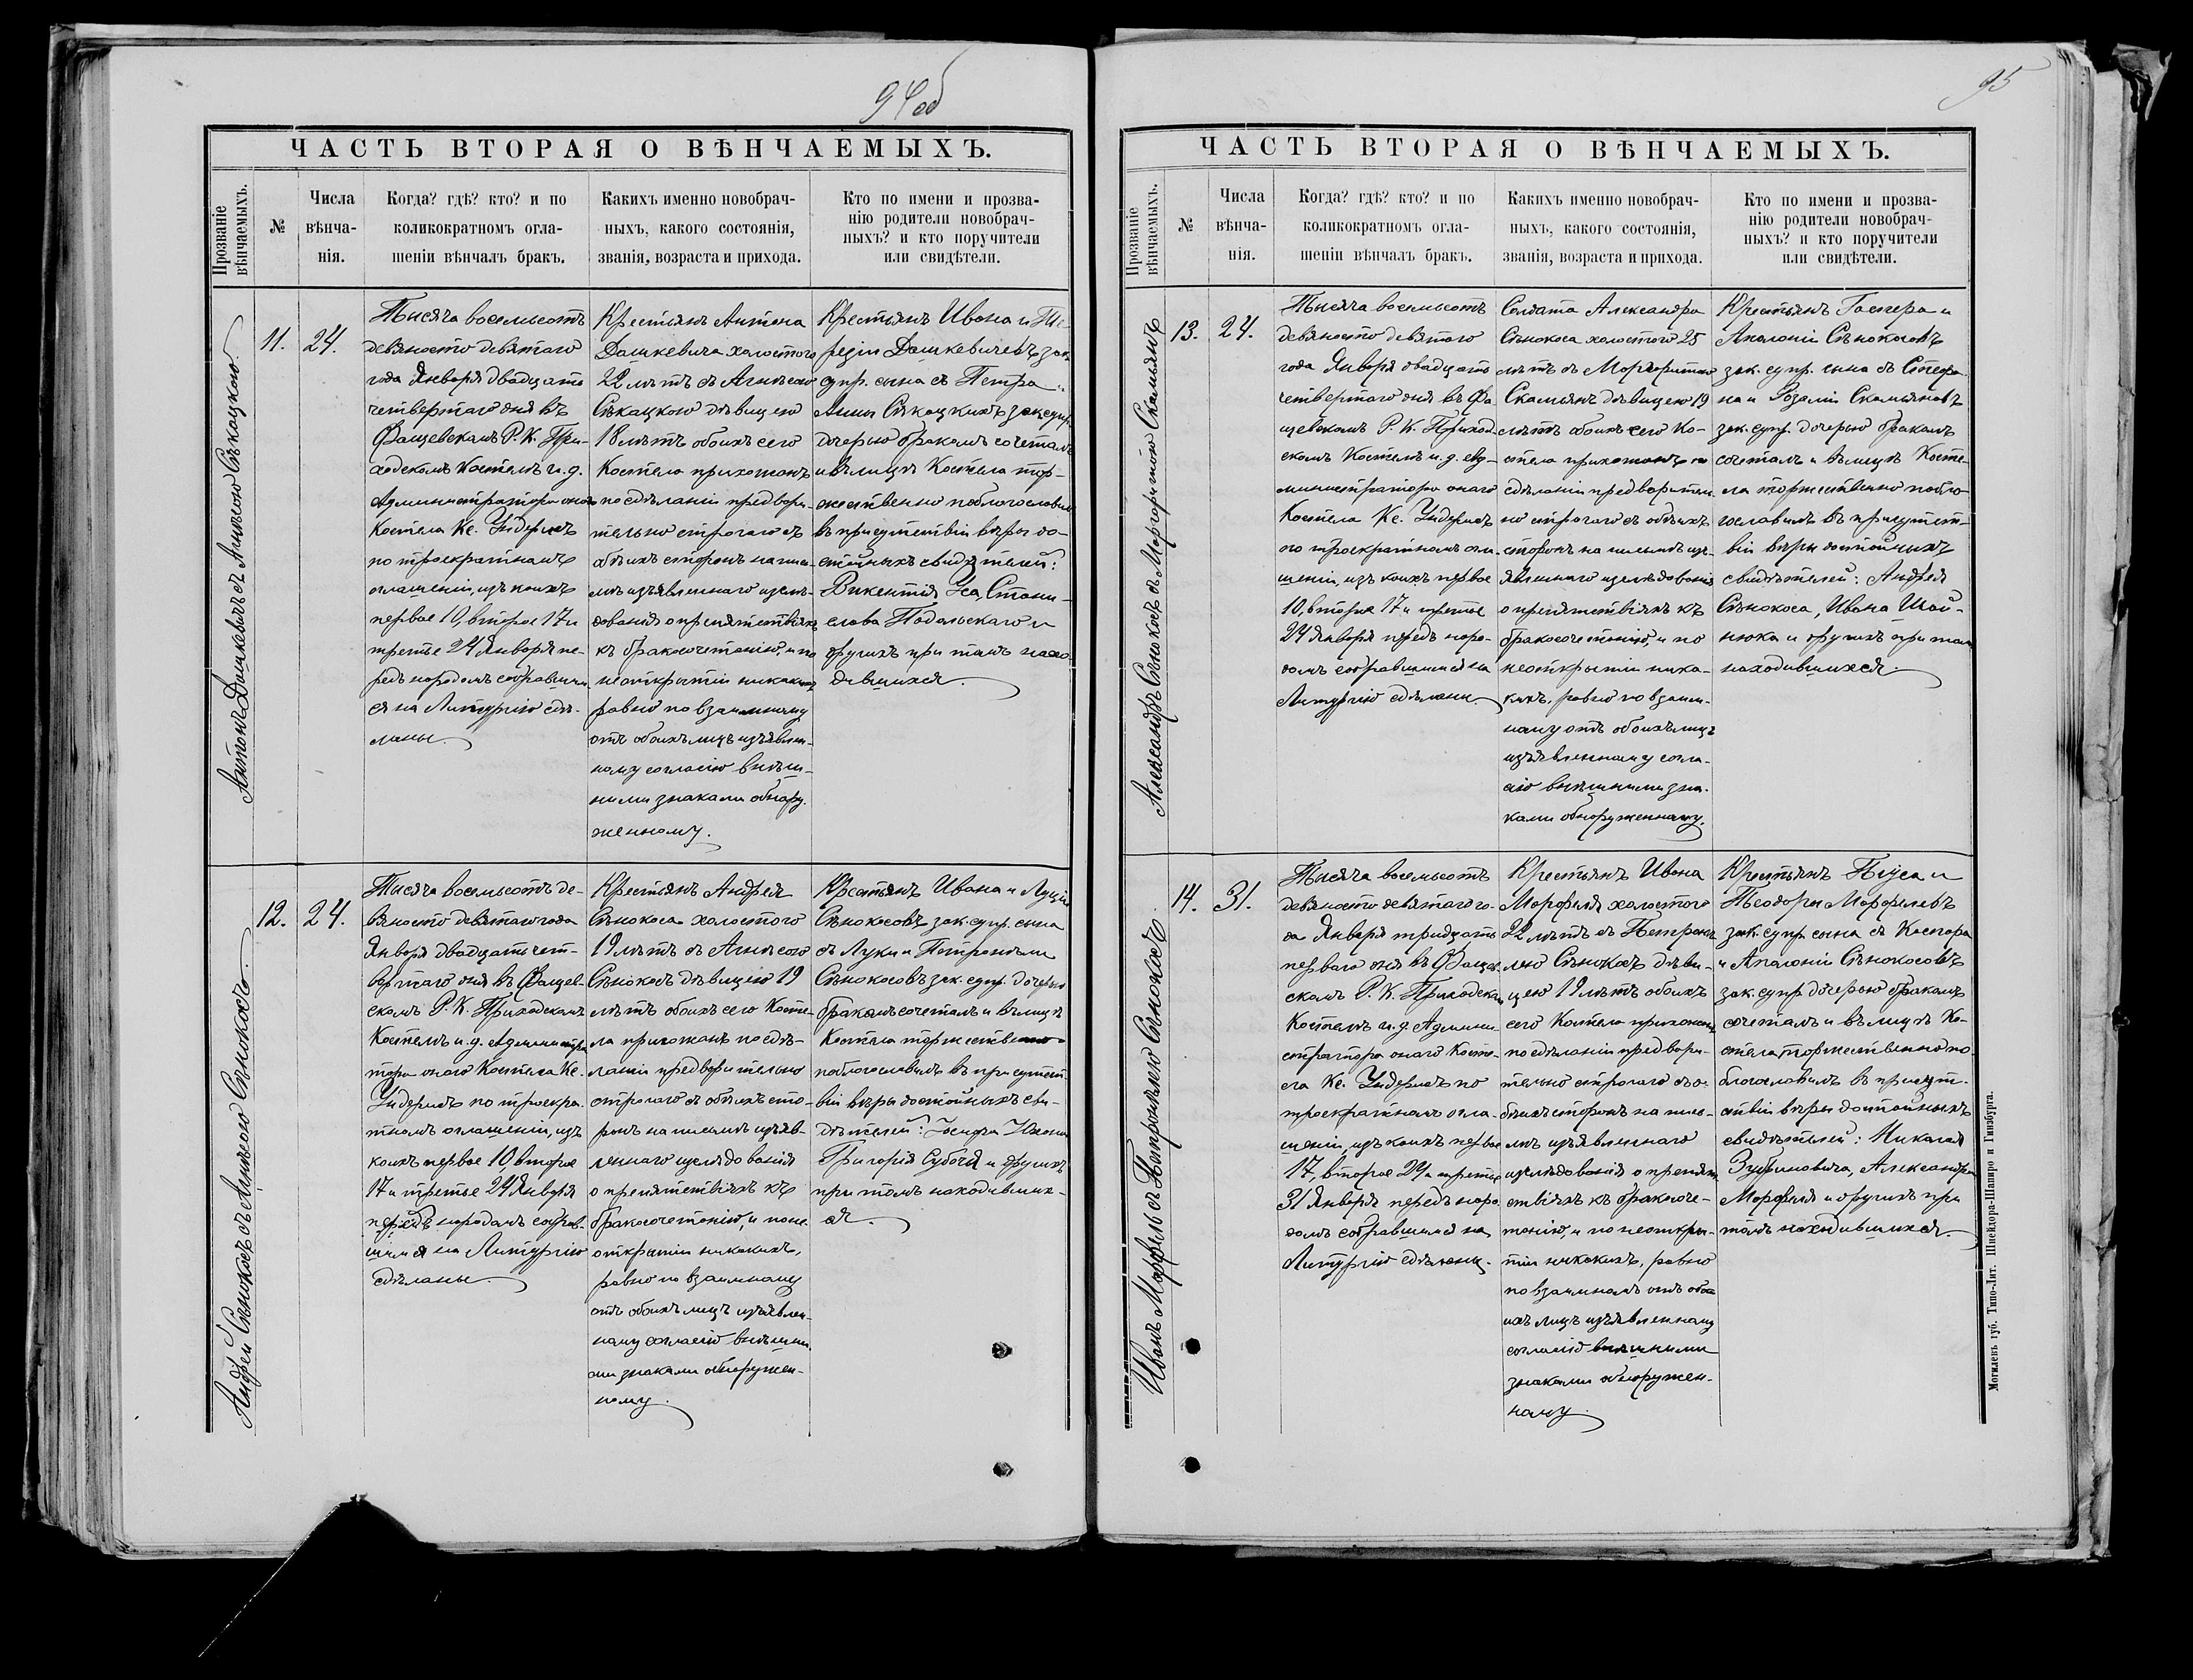 94об
ЧАСТЬ ВТОРАЯ О ВѢНЧАЕМЫХЪ.
Прозваніе
вѣнчаемыхъ.
№
Числа
вѣнча-
нія.
Когда? гдѣ? кто? и по
коликократномъ огла-
шеніи вѣнчалъ бракъ.
Какихъ именно новобрач-
ныхъ, какого состоянія,
званія, возраста и прихода.
Кто по имени и прозва-
нію родители новобрач-
ныхъ? и кто поручители
или свидѣтели.
Антонъ Дашкевичъ съ Агнѣсою Сѣкацкою.
11.
24.
Тысяча восемьсотъ
девяносто девятаго
года Января двадцать
четвертаго дня въ
Фащевскомъ Р. К. При-
ходскомъ Костелѣ и. д.
Администратора онаго
Костела Кс. Ундерисъ
по троекратномъ
оглашеніи, изъ коихъ
первое 10, второе 17 и
третье 24 Января пе-
редъ народомъ собравшим-
ся на Литургію сдѣ-
ланы.
Крестьянъ Антона
Дашкевича холостого
22 лѣтъ съ Агнѣсою
Сѣкацкою дѣвицею
18 лѣтъ обоихъ сего
Костела прихожанъ
по сдѣланіи предвори-
тельно строгаго съ
обѣихъ сторонъ на пись-
мѣ изъявленнаго изслѣ-
дованія о препятствіяхъ
къ бракосочетанію, и по
неоткрытіи никакихъ
равно по взаимному
отъ обоихъ лицъ изъявлен-
ному согласію внѣш-
ними знаками обнару-
женному.
Крестьянъ Ивана и Те-
резіи Дашкевичевъ зак.
супр. сына съ Петра и
Анны Сѣкацкихъ зак. супр.
дочерью бракомъ сочеталъ
и въ лицѣ Костела тор-
жественно поблагословилъ
въ присутствіи вѣры до-
стойныхъ свидѣтелей:
Викентія Уса, Стани-
слава Подольскаго и
другихъ при томъ нахо-
дившихся.
Андрей Сѣнокосъ съ Агнѣсою Сѣнокосъ.
12.
24.
Тысяча восемьсотъ де-
вяносто девятаго года
Января двадцать чет-
вертаго дня въ Фащев-
скомъ Р. К. Приходскомъ
Костелѣ и. д. Администра
тора онаго Костела Кс.
Ундерисъ по троекра-
тномъ оглашеніи, изъ
коихъ первое 10, второе
17 и третье 24 Января
передъ народомъ собрав-
шимся на Литургію
сдѣланы.
Крестьянъ Андрея
Сѣнокоса холостого
19 лѣтъ съ Агнѣсою
Сѣнокосъ дѣвицею 19
лѣтъ обоихъ сего Косте-
ла прихожанъ по сдѣ-
ланіи предворительно
строгаго съ обѣихъ сто-
ронъ на письмѣ изъяв-
леннаго изслѣдованія
о препятствіяхъ къ
бракосочетанію, и по не
открытіи никакихъ,
равно по взаимному
отъ обоихъ лицъ изъявлен-
ному согласію внѣшни-
ми знаками обнаружен-
ному.
Крестьянъ Ивана и Луціи
Сѣнокосовъ зак. супр. сына
съ Луки и Петронѣли
Сѣнокосовъ зак. супр. дочерью
бракомъ сочеталъ и въ лицѣ
Костела торжественно
поблагословилъ въ присутст-
віи вѣры достойныхъ сви-
дѣтелей: Іосифа
Григорія Субоча и другихъ
при томъ находивших-
ся.
95
ЧАСТЬ ВТОРАЯ О ВѢНЧАЕМЫХЪ.
Прозваніе
вѣнчаемыхъ.
№
Числа
вѣнча-
нія.
Когда? гдѣ? кто? и по
коликократномъ огла-
шеніи вѣнчалъ бракъ.
Какихъ именно новобрач-
ныхъ, какого состоянія,
званія, возраста и прихода.
Кто по имени и прозва-
нію родители новобрач-
ныхъ? и кто поручители
или свидѣтели.
Александръ Сѣнокосъ съ Маргаритою Скамьянъ
13.
24.
Тысяча восемьсотъ
девяносто девятаго
года Января двадцать
четвертаго дня въ Фа
щевскомъ Р. К. Приход-
скомъ Костелѣ и. д. Ад-
министратора онаго
Костела Кс. Ундерисъ
по троекратномъ огла-
шеніи, изъ коихъ первое
10, второе 17 и третье
24 Января передъ наро-
домъ собравшимся на
Литургію сдѣланы.
Солдата Александра
Сѣнокоса холостого 25
лѣтъ съ Маргаритою
Скамьянъ дѣвицею 19
лѣтъ обоихъ сего Ко-
стела прихожанъ по
сдѣланіи предворитель-
но строгаго съ обѣихъ
сторонъ на письмѣ изъ-
явленнаго изслѣдованія
о препятствіяхъ къ
бракосочетанію, и по
неоткрытіи ника-
кихъ, равно по взаим-
ному отъ обоихъ лицъ
изъявленному согла-
сію внѣшними зна-
ками обнаруженному.
Крестьянъ Гаспера и
Аполоніи Сѣнокосовъ
зак. супр. сына съ Стефа-
на и Розаліи Скамьяновъ
зак. супр. дочерью бракомъ
сочеталъ и въ лицѣ Косте-
ла торжественно побла-
гословилъ въ присутст-
віи вѣры достойныхъ
свидѣтелей: Андрея
Сѣнокоса, Ивана Шай-
нюка и другихъ при томъ
находившихся.
Иванъ Марфель съ Петронѣлею Сѣнокосъ
14.
31.
Тысяча восемьсотъ
девяносто девятаго го-
да Января тридцать
перваго дня въ Фащев-
скомъ Р. К. Приходскомъ
Костелѣ и. д. Админи-
стратора онаго Косте-
ла Кс. Ундерисъ по
троекратномъ огла-
шеніи, изъ коихъ первое
17, второе 24 и третье
31 Января передъ наро-
домъ собравшимся на
Литургію сдѣланы.
Крестьянъ Ивана
Марфеля холостого
22 лѣтъ съ Петронѣ
лею Сѣнокосъ дѣви-
цею 19 лѣтъ обоихъ
сего Костела прихожанъ
по сдѣланіи предвори-
тельно строгаго съ о-
бѣихъ сторонъ на пись-
мѣ изъявленнаго
изслѣдованія о препят-
ствіяхъ къ бракосоче-
танію, и по неоткры-
тіи никакихъ, равно
по взаимномъ отъ обо-
ихъ лицъ изъявленному
согласію внѣшними
знаками обнаружен-
ному.
Крестьянъ Піуса и
Теодоры Марфелевъ
зак. супр. сына съ Каспера
и Аполоніи Сѣнокосовъ
зак. супр. дочерью бракомъ
сочеталъ и въ лицѣ Ко-
стела торжественно по-
благословилъ въ присут-
ствіи вѣры достойныхъ
свидѣтелей: Михаила
Зубриновича, Александра
Марфеля и другихъ при
томъ находившихся.
Могилевъ губ. Типо-Лит. Шнейдора-Шапиро и Гинзбурга.